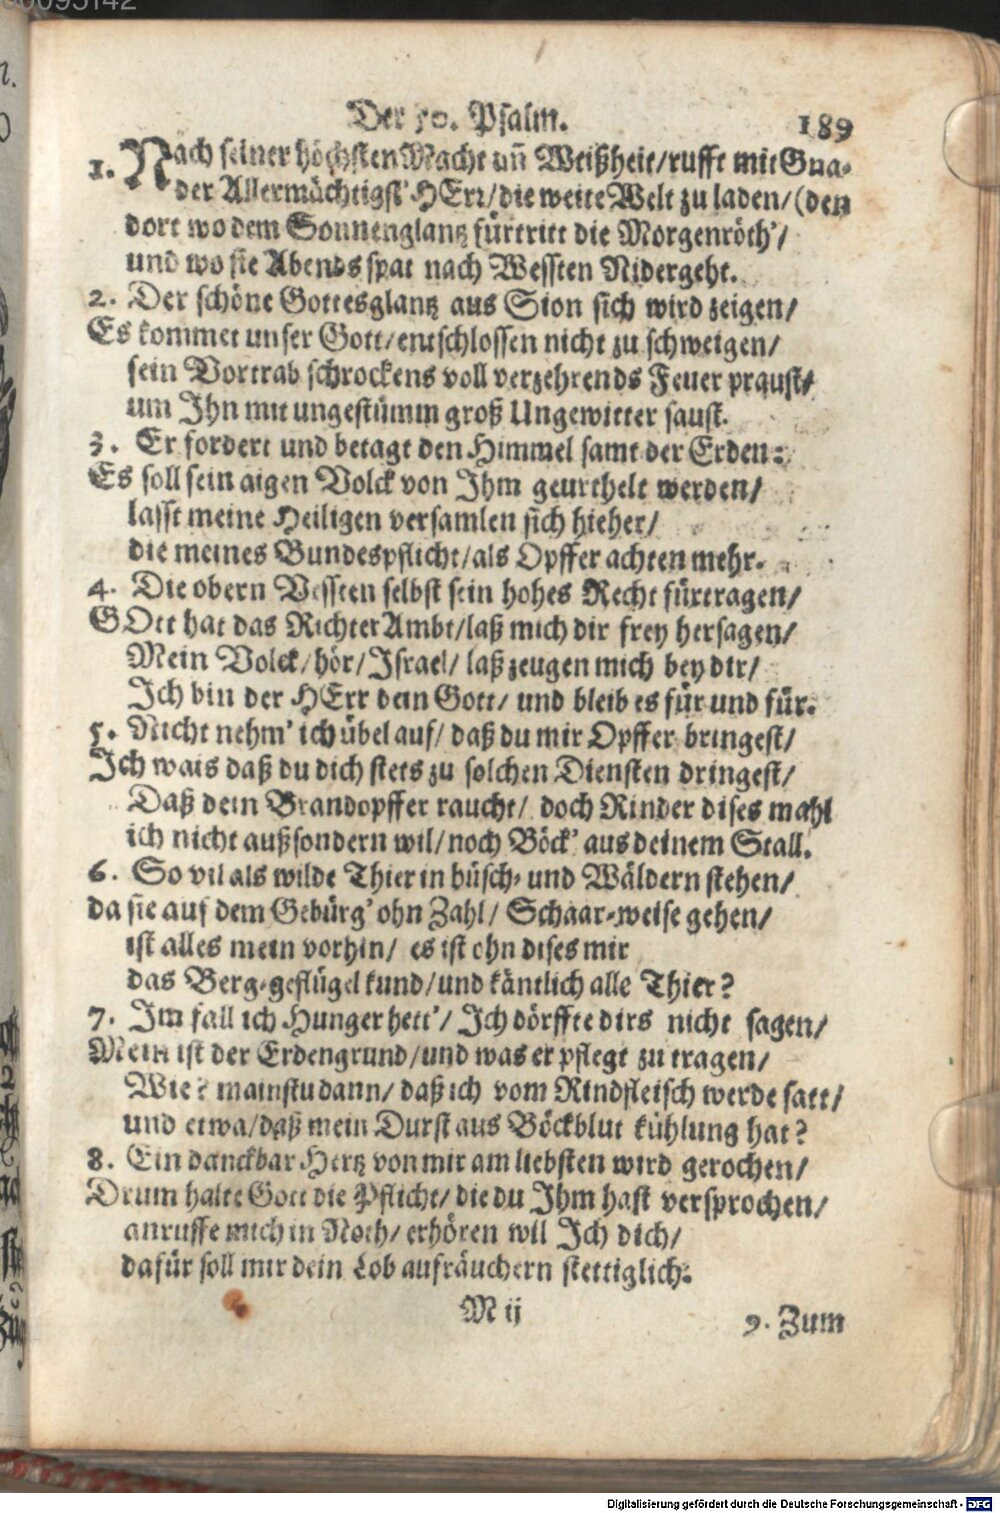 00095142
Der 50. Psalm. 189
1. Nach seiner höchsten Macht uñ Weißheit/rufft mit Gna-
der Allermächtigst' HErr/die weite Welt zu laden/(den
dort wo dem Sonnenglantz fürtritt die Morgenröth'/
und wo sie Abends spat nach Wessten Nidergeht.
2. Der schöne Gottesglantz aus Sion sich wird zeigen/
Es kommet unser Gott/entschlossen nicht zu schweigen/
sein Vortrab schrockens voll verzehrends Feuer praust/
um Ihn mit ungestümm groß Ungewitter saust.
3. Er fordert und betagt den Himmel samt der Erden:
Es soll sein aigen Volck von Ihm geurthelt werden/
lasst meine Heiligen versamlen sich hieher/
die meines Bundespflicht/als Opffer achten mehr.
4. Die obern Vessten selbst sein hohes Recht fürtragen/
GOtt hat das RichterAmbt/laß mich dir frey hersagen/
Mein Volck/hör/Israel/laß zeugen mich bey dir/
Ich bin der HErr dein Gott/und bleib es für und für.
5. Nicht nehm' ich übel auf/daß du mir Opffer bringest/
Ich wais daß du dich stets zu solchen Diensten dringest/
Daß dein Brandopffer raucht/doch Rinder dises mahl
ich nicht außsondern wil/noch Böck' aus deinem Stall.
6. So vil als wilde Thier in büsch- und Wäldern stehen/
da sie auf dem Gebürg' ohn Zahl/Schaar-weise gehen/
ist alles mein vorhin/es ist ohn dises mir
das Berg-geflügel kund/und käntlich alle Thier?
7. Im fall ich Hunger hett'/Ich dörffte dirs nicht sagen/
Mein ist der Erdengrund/und was er pflegt zu tragen/
Wie? mainstu dann/daß ich vom Rindfleisch werde satt/
und etwa/daß mein Durst aus Böckblut kühlung hat?
8. Ein danckbar Hertz von mir am liebsten wird gerochen/
Drum halte Gott die Pflicht/die du Ihm hast versprochen/
anruffe mich in Noth/erhören wil Ich dich/
dafür soll mir dein Lob aufräuchern stettiglich.
M ij
9. Zum
Digitalisierung gefördert durch die Deutsche Forschungsgemeinschaft - DFG